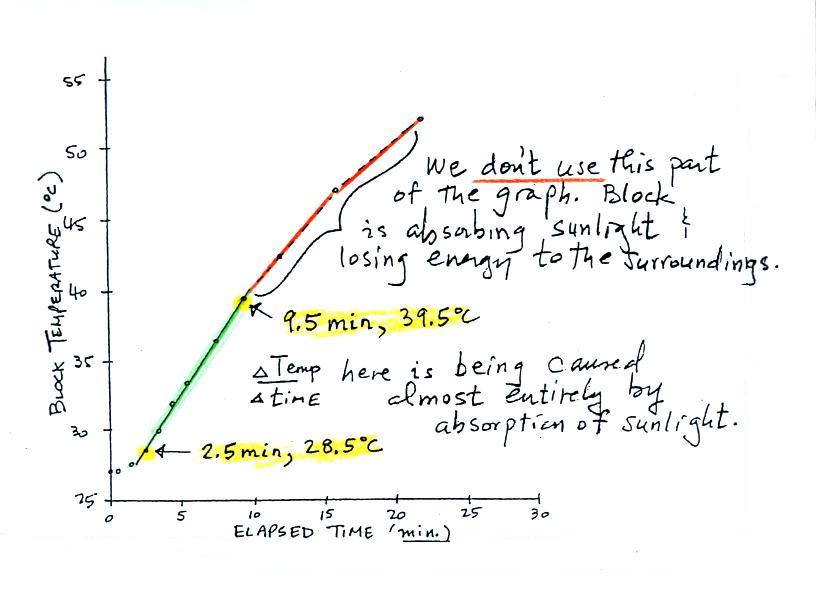 55
50
45
40
35
30
25
BLOCK TEMPERATURE (°C)
We don't use this part
of the graph. Block
is absorbing sunlight &
losing energy to the surroundings.
9.5 min, 39.5°C
Δ Temp here is being caused
Δ time almost entirely by
absorption of sunlight.
2.5 min, 28.5°C
0 5 10 15 20 25 30
ELAPSED TIME (min.)